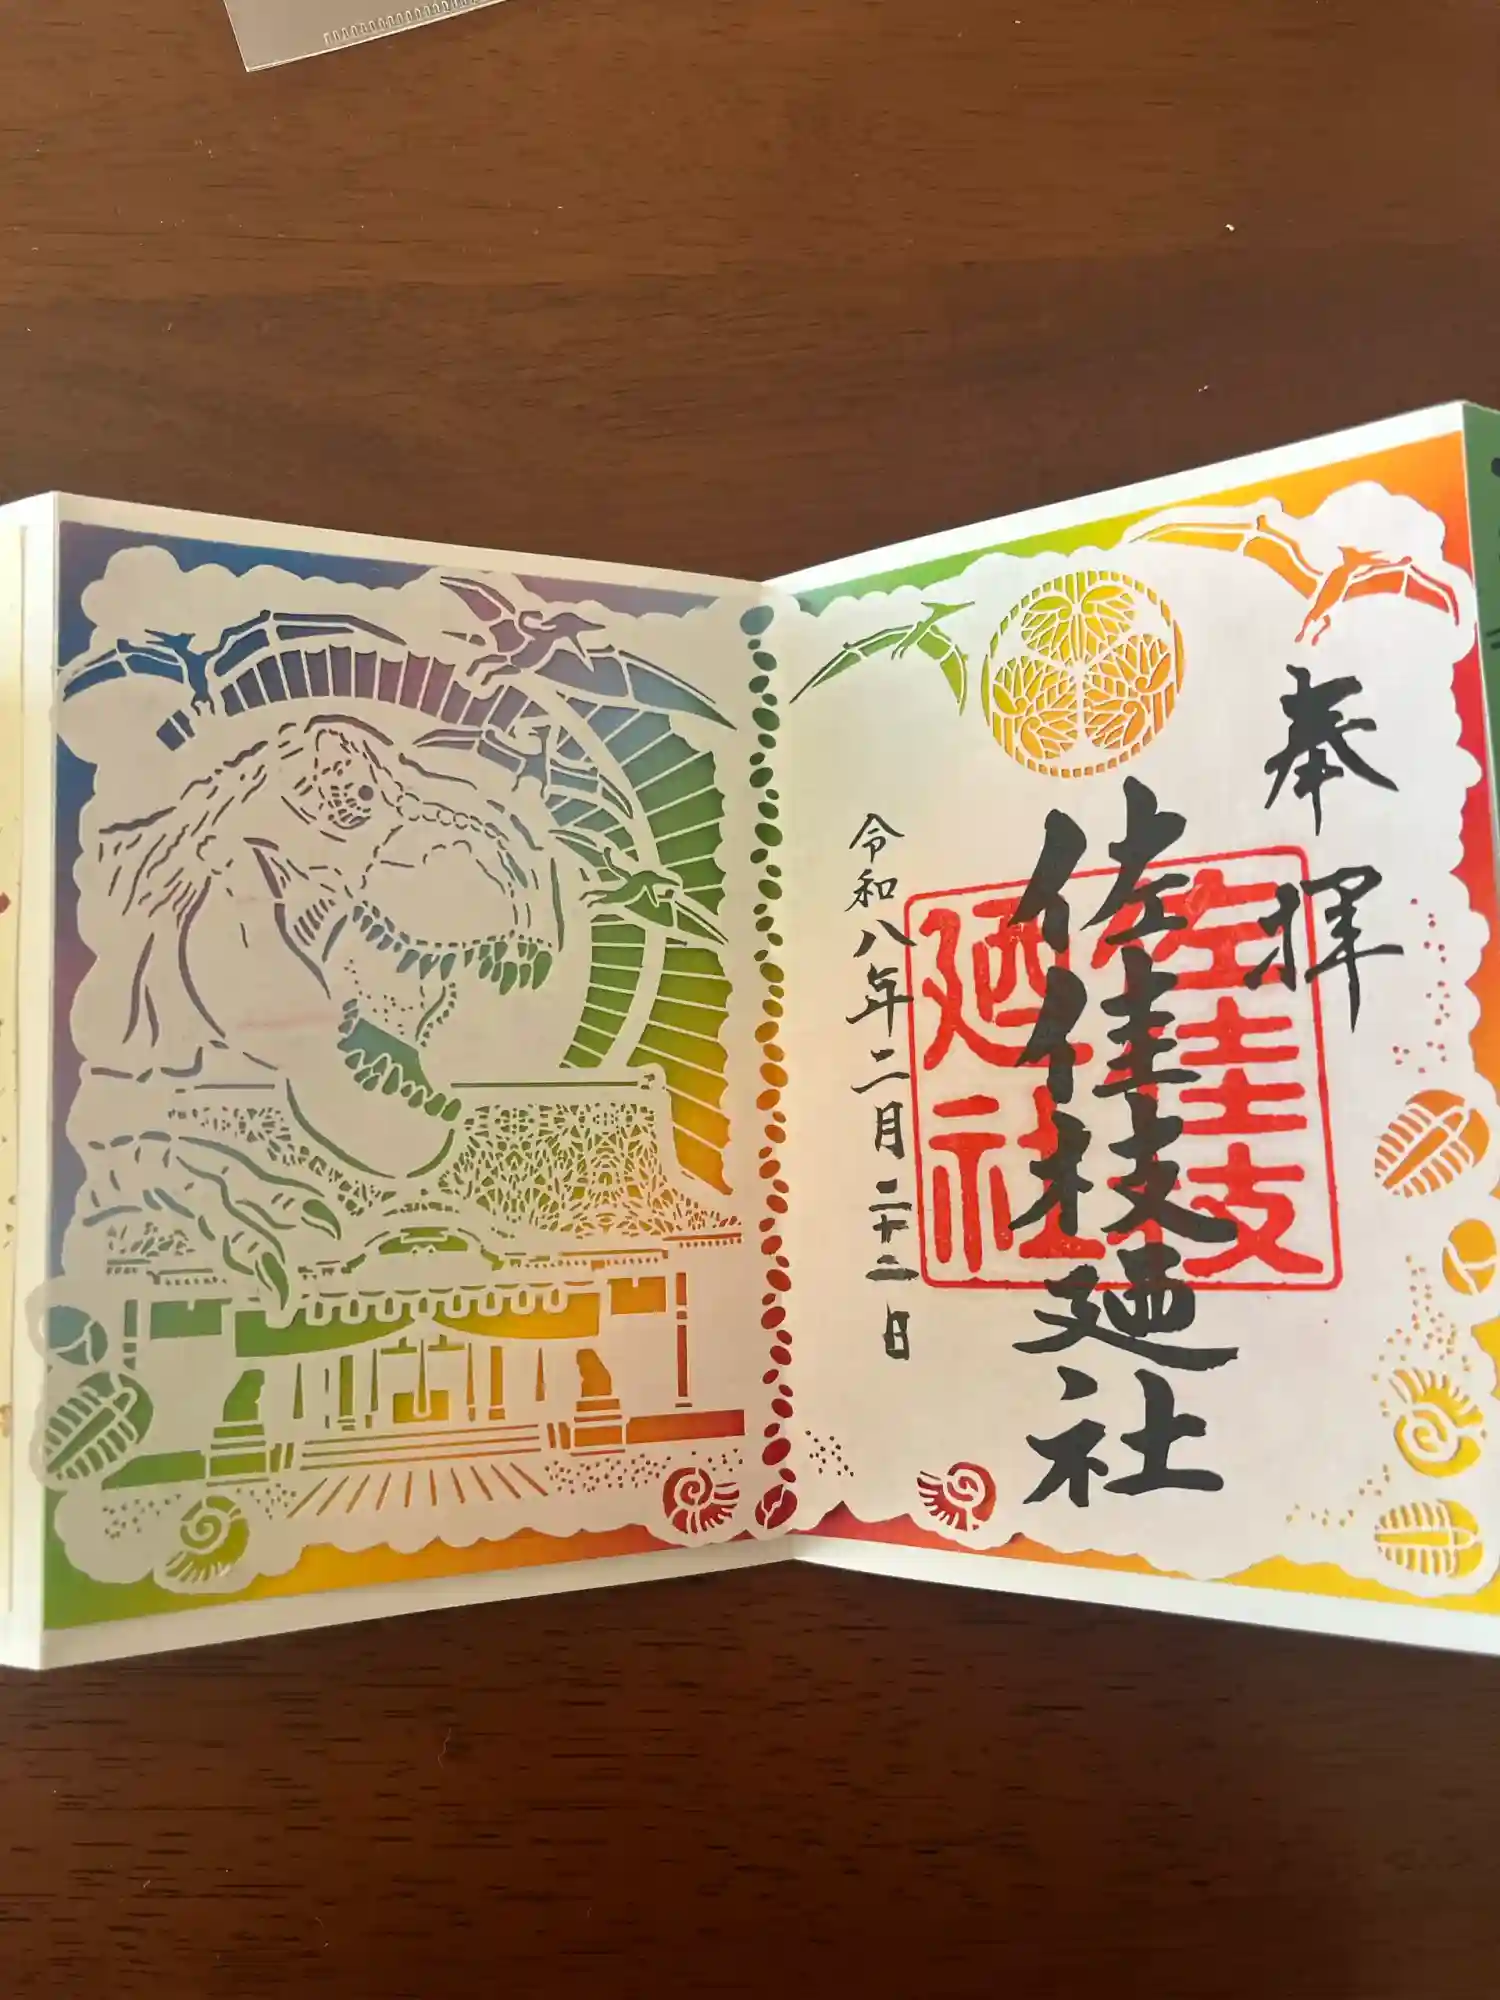 奉拝
佐佳枝廼社
佐佳枝廼社
令和八年二月二十二日